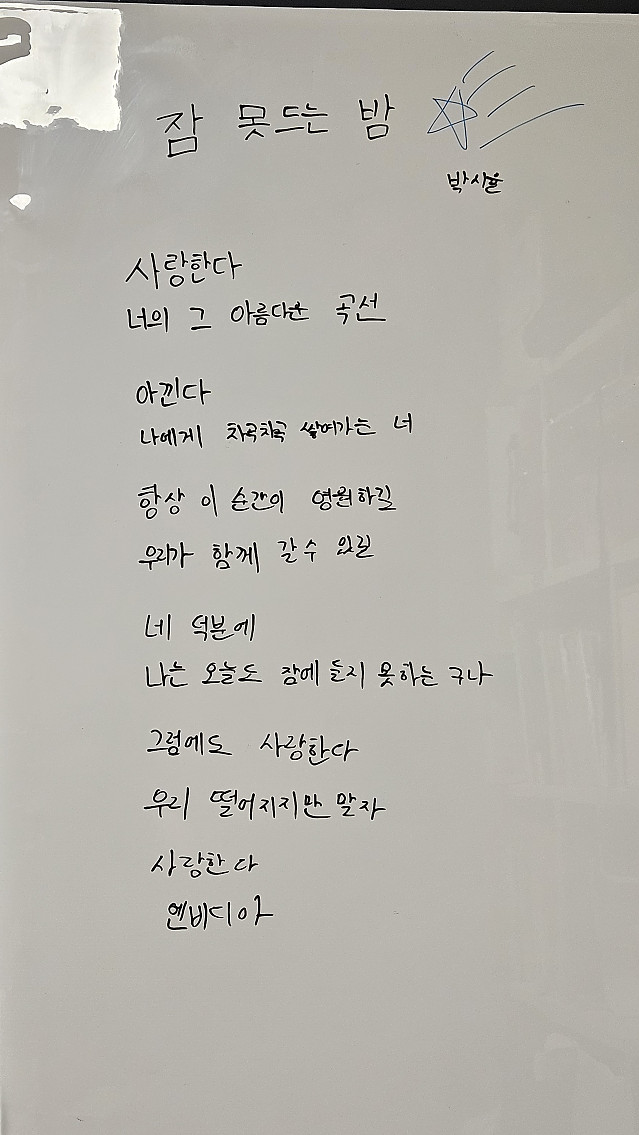 잠 못드는 밤
박시율
사랑한다
너의 그 아름다운 곡선
아낀다
나에게 차곡차곡 쌓여가는 너
항상 이 순간이 영원하길
우리가 함께 갈 수 있길
네 덕분에
나는 오늘도 잠에 들지 못하는구나
그럼에도 사랑한다
우리 떨어지지만 말자
사랑한다
엔비디아